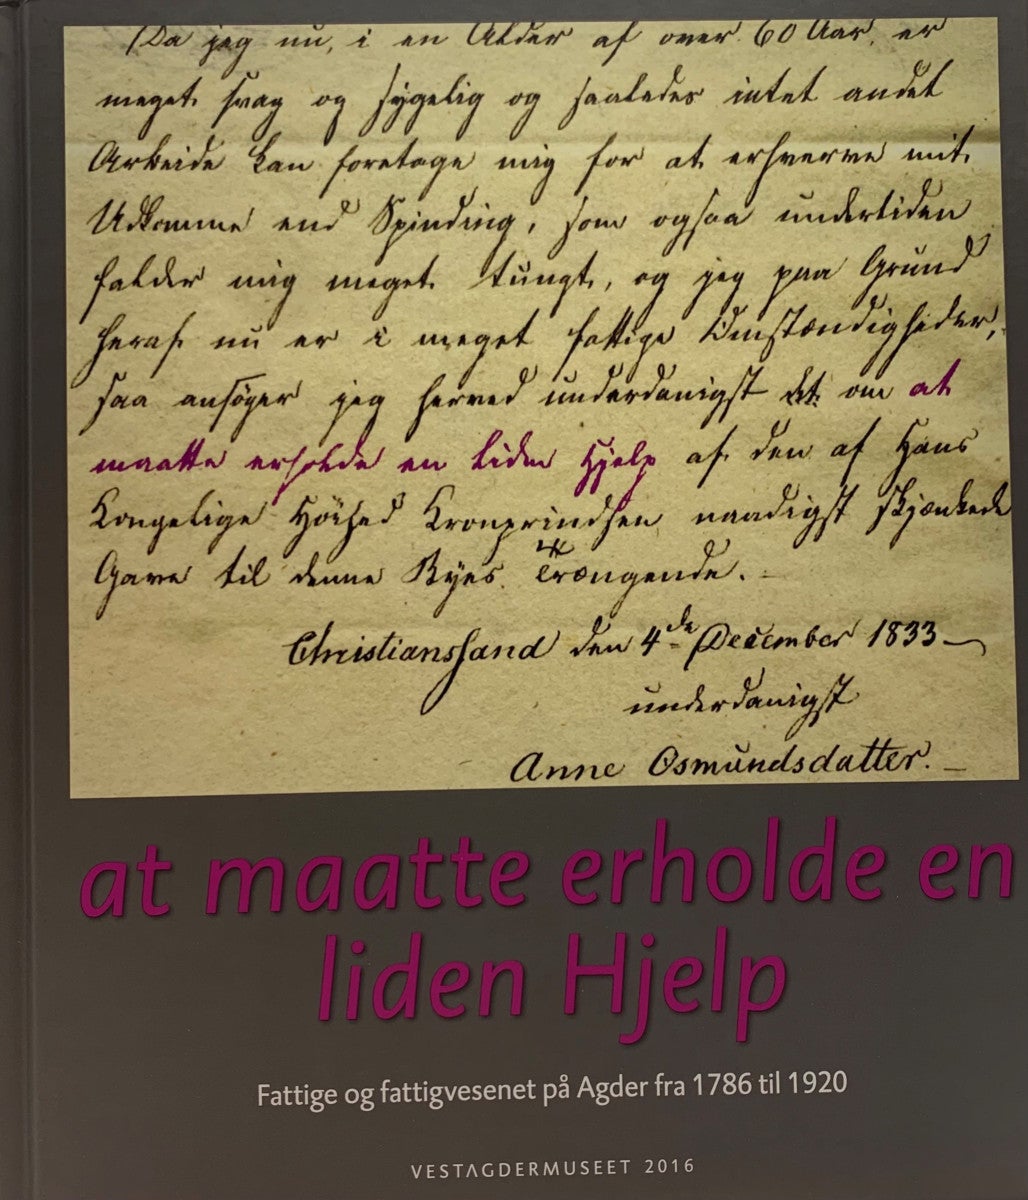 Da jeg nu, i en Alder af over 60 Aar, er
meget svag og sygelig og saaledes intet andet
Arbeide kan foretage mig for at erhverve mit
Udkomme end Spinding, som ogsaa undertiden
falder mig meget tungt, og jeg paa Grund
heraf nu er i meget fattige Omstændigheder,
saa ansøger jeg herved underdanigst om at
maatte erholde en liden Hjelp af den af Hans
Kongelige Höihed Kronprindsen naadigst skjænkede
Gave til denne Byes Trængende.
Christianssand den 4de December 1833
underdanigst
Anne Osmundsdatter.
at maatte erholde en
liden Hjelp
Fattige og fattigvesenet på Agder fra 1786 til 1920
VESTAGDERMUSEET 2016